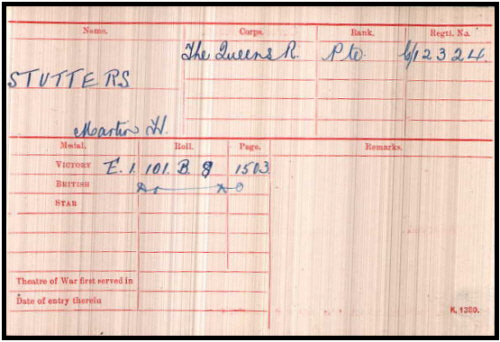 Name. Corps. Rank. Regtl. No.
The Queens R. Pte. G/12324
STUTTERS
Martin H.
Medal. Roll. Page. Remarks.
VICTORY E. 1. 101. B. 8 1503
BRITISH do do
STAR
Theatre of War first served in
Date of entry therein
K. 1380.